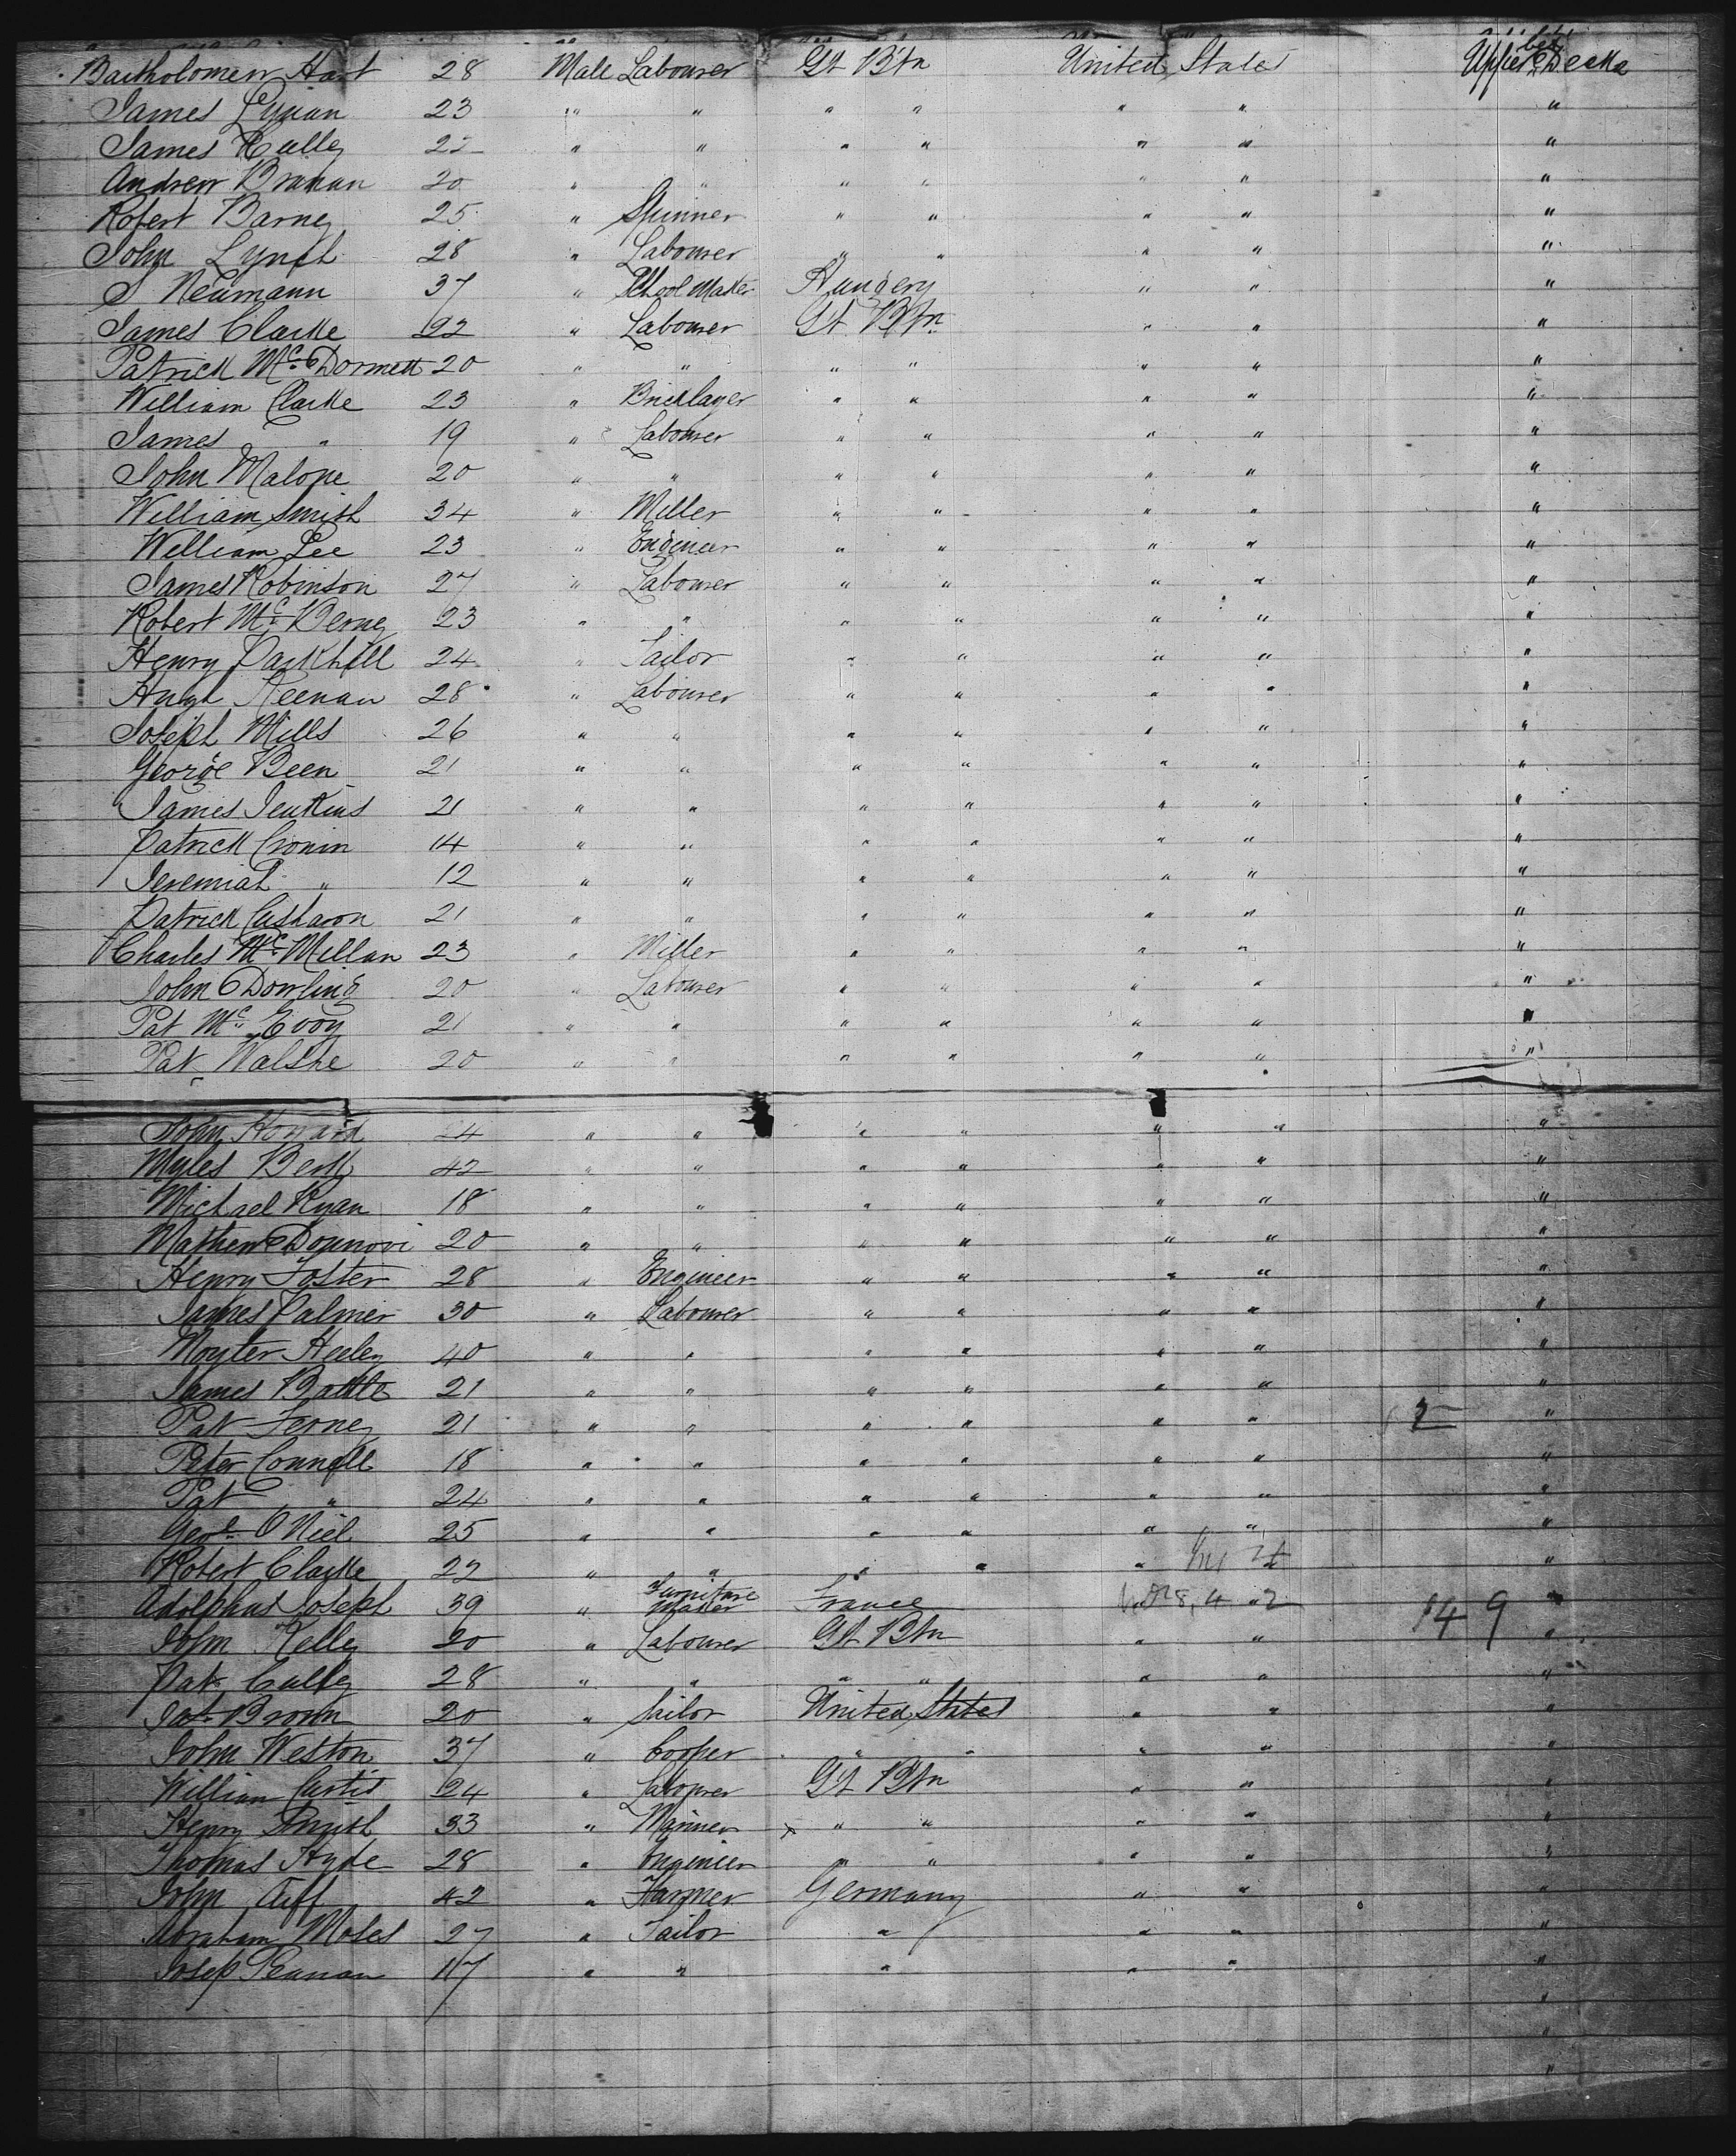 Bartholomew Hart 28 Male Labourer Gt Btn United States Upper Decks
James Lyman 23 " " " " " " "
James Kelley 22 " " " " " " "
Andrew 20 " " " " " " "
Robert Barney 25 " Spinner " " " " "
John Lynch 28 " Labourer " " " " "
S Neumann 37 " School Master Hungery " " "
James Clarke 22 " Labourer Gt Btn " " "
Patrick McDormett 20 " " " " " " "
William Clarke 23 " Bricklayer " " " " "
James " 19 " Labourer " " " " "
John Malone 20 " " " " " " "
William Smith 34 " Miller " " " " "
William Lee 23 " Engineer " " " " "
James Robinson 27 " Labourer " " " " "
Robert Mc Berney 23 " " " " " " "
Henry Parkhill 24 " Tailor " " " " "
Hugh Keenan 28 " Labourer " " " " "
Joseph Mills 26 " " " " " " "
George Been 21 " " " " " " "
James Jenkins 21 " " " " " " "
Patrick Cronin 14 " " " " " " "
Jeremiah " 12 " " " " " " "
Patrick 21 " " " " " " "
Charles McMillan 23 " Miller " " " " "
John Dowling 20 " Labourer " " " " "
Pat McEvoy 21 " " " " " " "
Pat Walshe 20 " " " " " " "
John Howard 24 " " " " " " "
Myles 42 " " " " " " "
Michael Ryan 18 " " " " " " "
Mathew 20 " " " " " " "
Henry Foster 28 " Engineer " " " " "
James Palmer 30 " Labourer " " " " "
Heeley 40 " " " " " " "
James Battle 21 " " " " " " "
Pat Ferney 21 " " " " " " "
Peter Connell 18 " " " " " " "
Pat " 24 " " " " " " "
Geoe O Niel 25 " " " " " " "
Robert Clarke 22 " " " " " "
Adolphus Joseph 39 " Furniture Maker France 149 "
John Kelley 20 " Labourer Gt Btn " " "
Pat Culley 28 " " " " " " "
Jas Brown 20 " Sailor United States " " "
John Weston 37 " Cooper " " " " "
William Curtis 24 " Labourer Gt Btn " " "
Henry Smith 33 " Mariner x " " " " "
Thomas Hyde 28 " Engineer " " " " "
John 42 " Farmer Germany " " "
Abraham Moses 27 " Tailor " " " "
Josep 47 " " " " " "
"
"
"